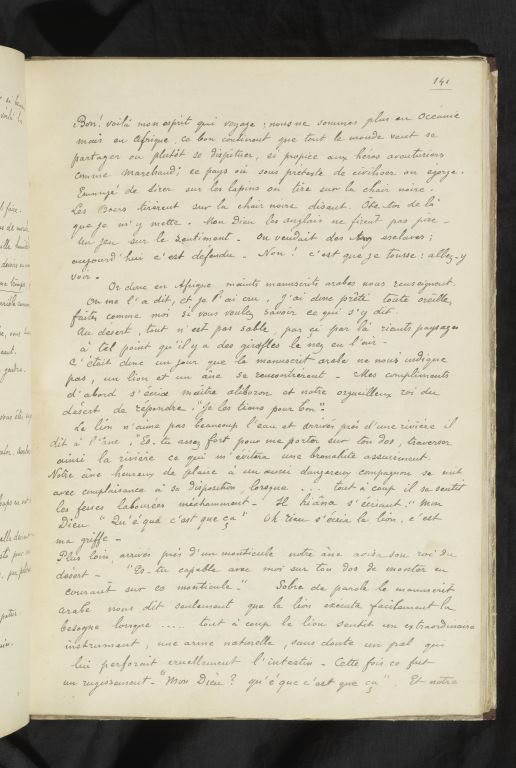 141
Bon! voilà mon esprit qui voyage; nous ne sommes plus en Océanie
mais en Afrique, ce bon continent que tout le monde veut se
partager ou plutôt se disputer, si propice aux héros aventuriers
comme Marchand; ce pays où sous prétexte de civiliser on égorge.
Ennuyé de tirer sur les lapins on tire sur la chair noire.
Les Boers tirèrent sur la chair noire disant. Ote toi de là
que je m'y mette. Mon Dieu les anglais ne firent pas pire -
Un peu sur le Sentiment. On vendait des esclaves;
aujourd'hui c'est défendu - Non! c'est que je tousse; allez-y
voir -
Or donc en Afrique maints manuscrits arabes nous renseignent.
On me l'a dit, et je l'ai cru, j'ai donc prêté toute oreille,
faites comme moi si vous voulez savoir ce qui s'y dit.
Au désert, tout n'est pas sable, par ci par là riants paysages
à tel point qu'il y a des girafles le nez en l'air -
C'était donc un jour que le manuscrit arabe ne nous indique
pas, un lion et un âne se rencontrèrent - Mes compliments
d'abord s'écrie maître aliboron et notre orgueilleux roi du
désert de répondre: "Je les tiens pour bon".
Le lion n'aime pas beaucoup l'eau et arrivés près d'une rivière il
dit à l'âne, "Es-tu assez fort pour me porter sur ton dos, traverser
ainsi la rivière ce qui m'évitera une bronchite assurément.
Notre âne heureux de plaire à un aussi dangereux compagnon se mit
avec complaisance à sa disposition, lorsque ... tout à coup il se sentit
les fesses labourées méchamment - Hi hiâna s'écriant "Mon
Dieu "Qu'é qué c'est que ça" Oh rien s'écria le lion, c'est
ma griffe -
Plus loin, arrivés près d'un monticule notre âne avisa son roi du
désert - "Es-tu capable avec moi sur ton dos de monter en
courant sur ce monticule" - Sobre de parole le manuscrit
arabe nous dit seulement que le lion exécuta facilement la
besogne lorsque .... tout à coup le lion sentit un extraordinaire
instrument, une arme naturelle, sans doute un pal qui
lui perforait cruellement l'intestin - Cette fois ce fut
un rugissement - "Mon Dieu? qu'é que c'est que ça". Et notre